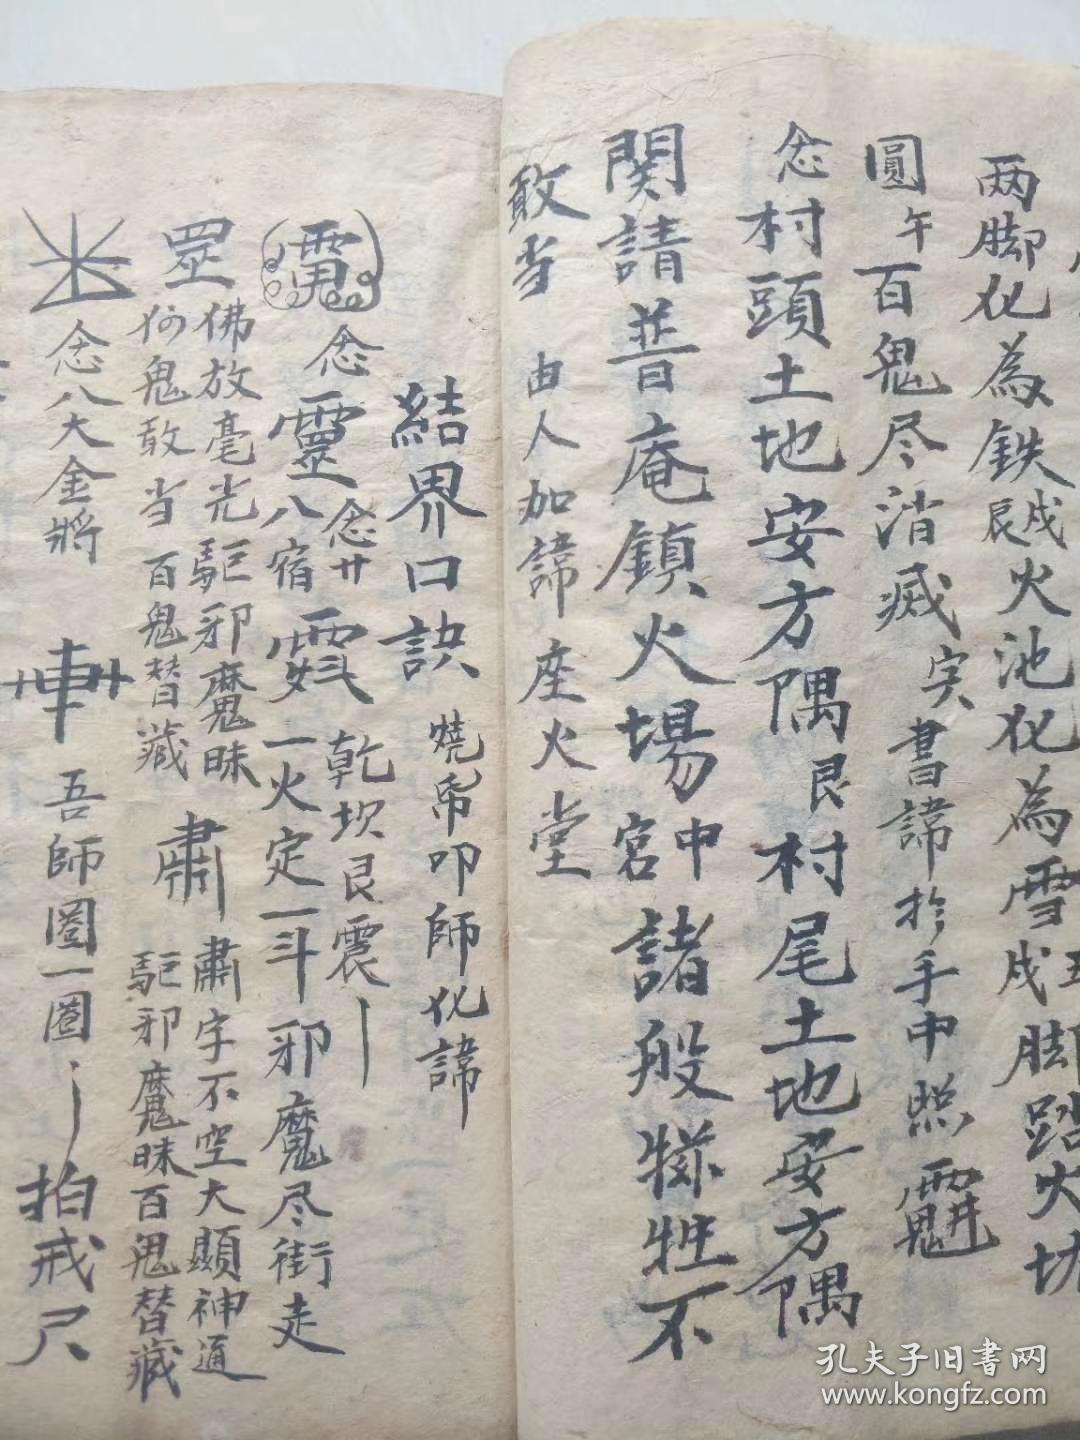 两脚化為鉄钺火池化為雪戍脚踏火坊
圓午百鬼尽消滅 实書諱於手中照
念村頭土地安方隅艮村尾土地安方隅
関請普庵鎮火場中宮諸般犠牲不
敢当 由人加諱座火堂
結界口訣 燒帋叩師化諱
念靈念廿八宿 乾坎艮震
一火定一斗邪魔尽街走
佛放毫光駈邪魔昧
何鬼敢当百鬼替藏
肅 肅字不空大顯神通
駈邪魔昧百鬼替藏
念八大金將 吾師圏一圏 拍戒尺
孔夫子旧書网
www.kongfz.com